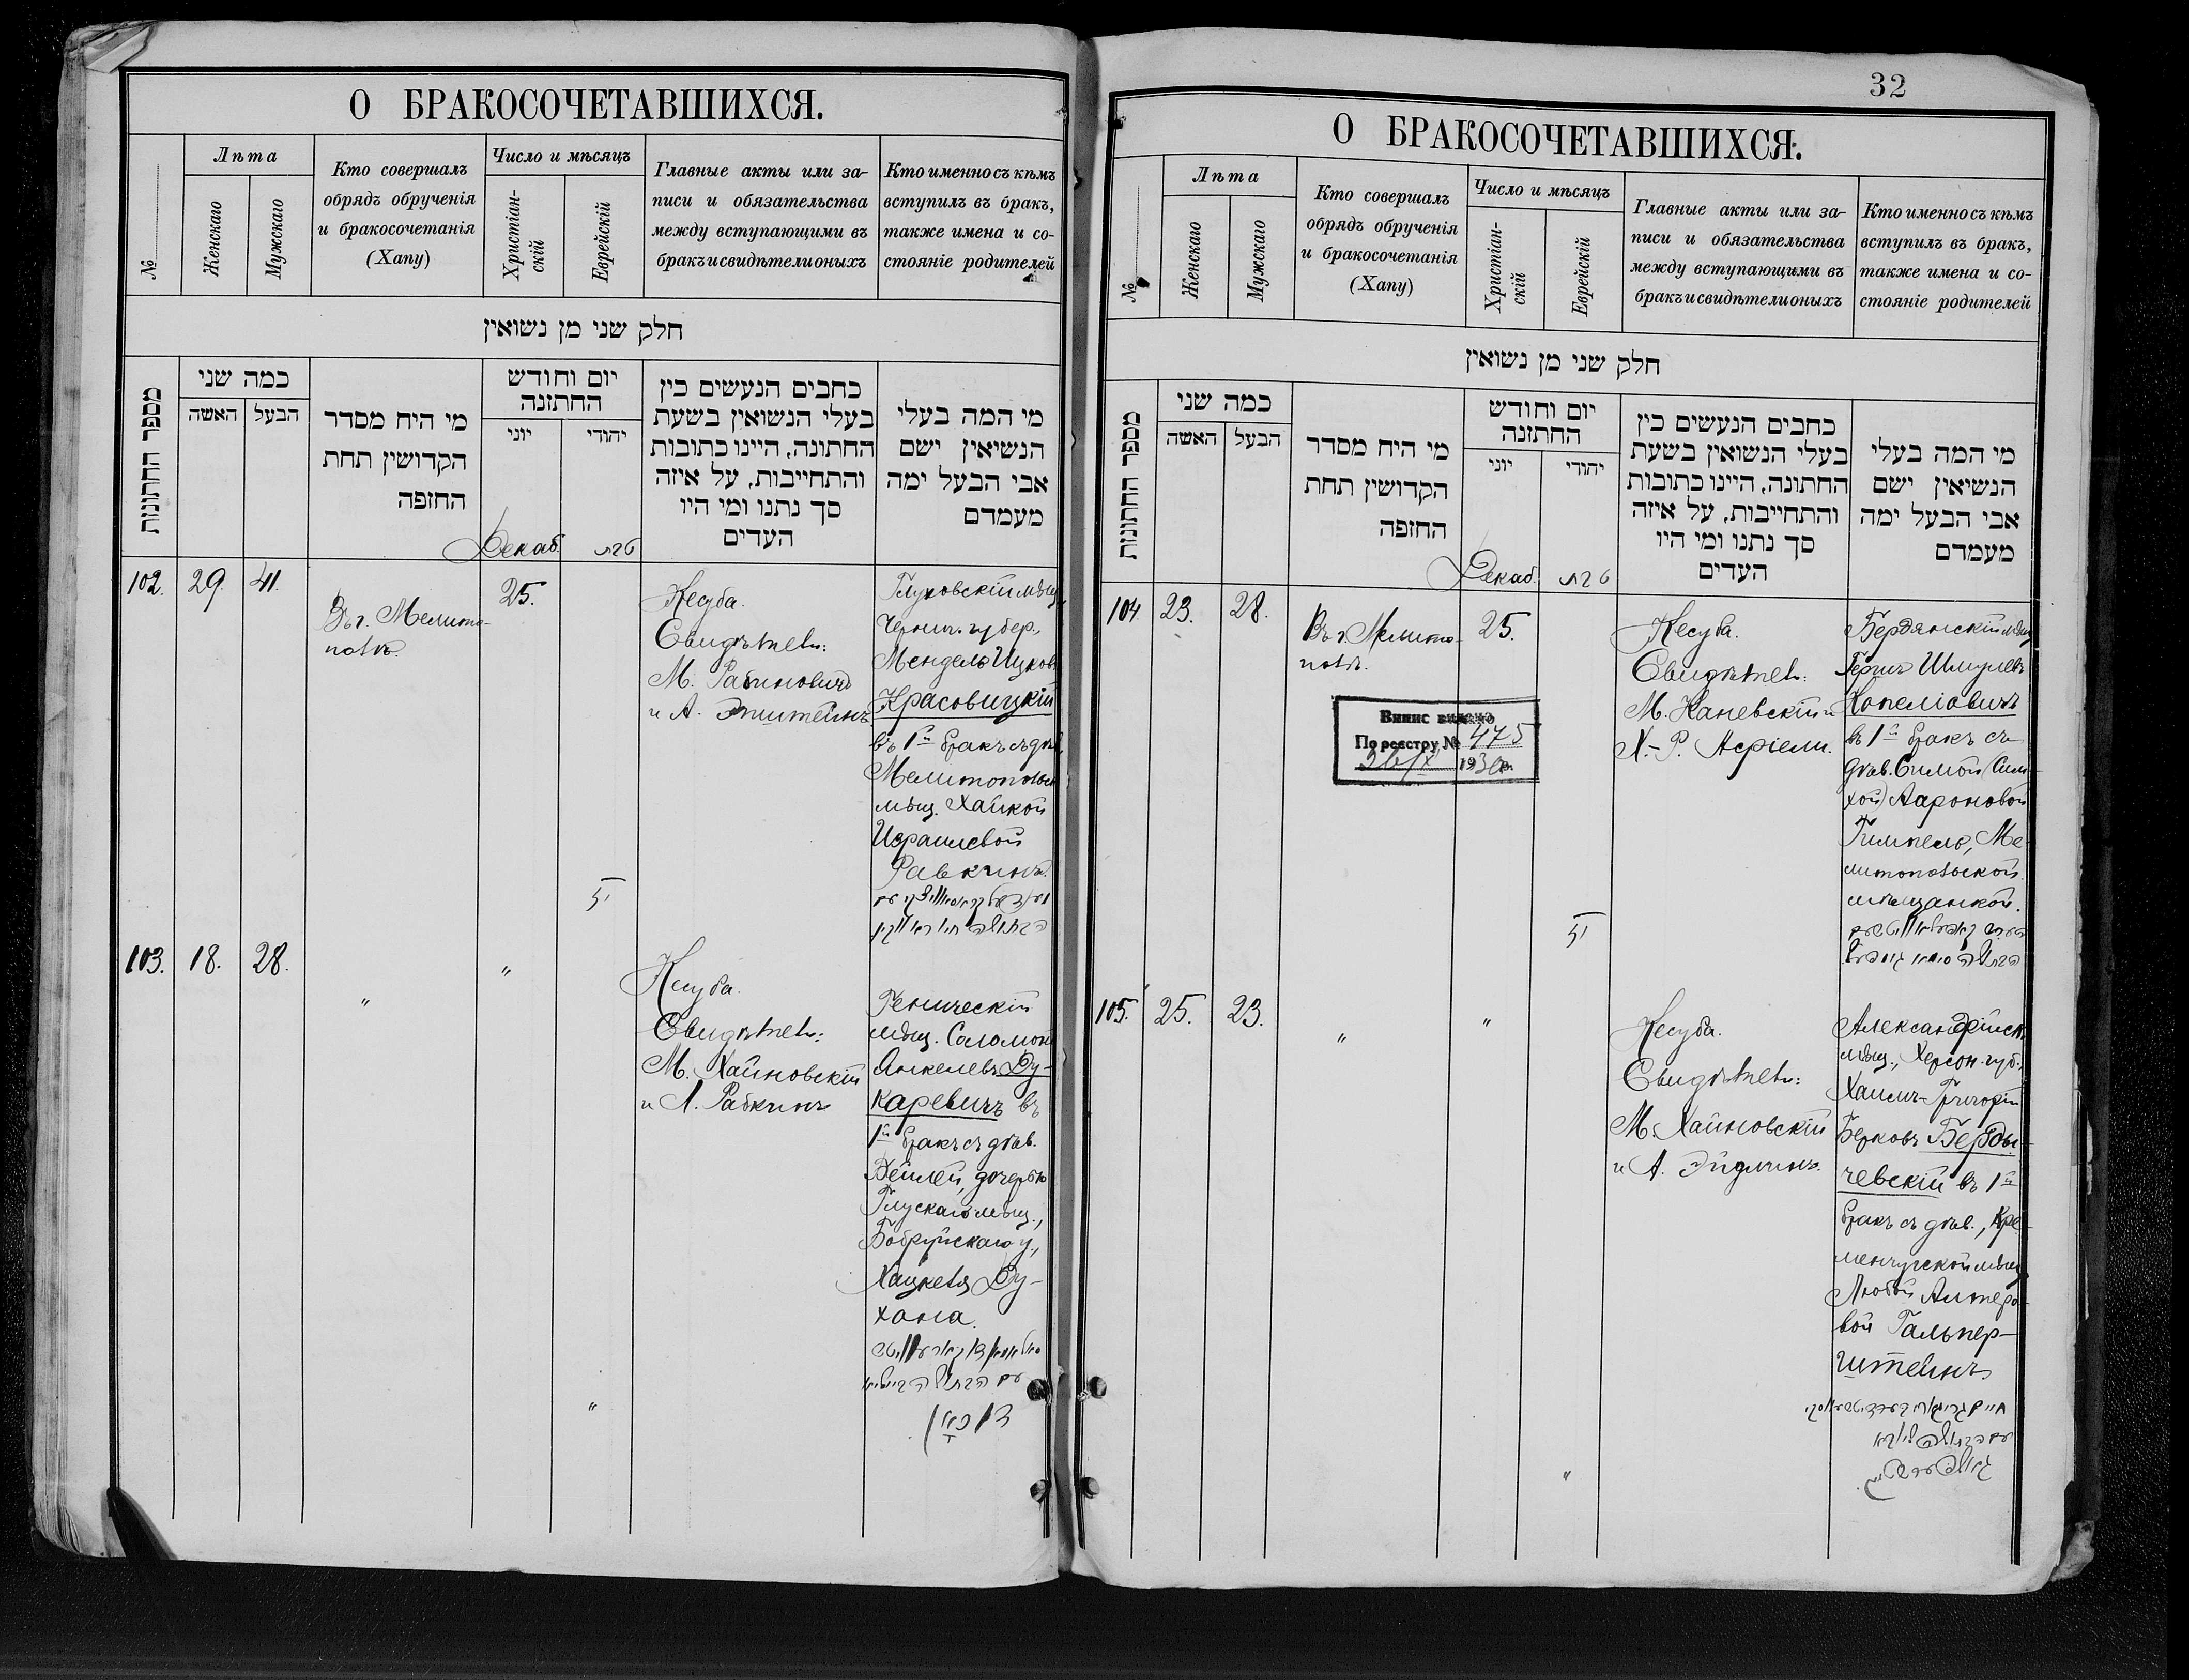 О БРАКОСОЧЕТАВШИХСЯ.
№
Лѣта
Женскаго
Мужскаго
Кто совершалъ
обрядъ обрученія
и бракосочетанія
(Хапу)
Число и мѣсяцъ
Христіан-
скій
Еврейскій
Главные акты или за-
писи и обязательства
между вступающими въ
бракъ и свидѣтели оныхъ
Кто именно съ кѣмъ
вступилъ въ бракъ,
также имена и со-
стояніе родителей
חלק שני מן נשואין
מספר החתונות
כמה שני
האשה
הבעל
מי היח מסדר
הקדושין תחת
החזפה
יום וחודש
החתזנה
יוני
יהודי
כחבים הנעשים כין
בעלי הנשואין בשעת
החתונה, היינו כתובות
והתחייבות, על איזה
סך נתנו ומי היו
העדים
מי המה בעלי
הנשיאין ישם
אבי הבעל ימה
מעמדם
Декаб.
טבת
102.
29.
41.
Въ г. Мелито-
полѣ.
25.
יז
Кесуба.
Свидѣтели:
М. Рабиновичъ
и А. Эпштейнъ
Глуховскій мѣщ.
Черниг. губер.,
Мендель Ицков
Красовицкій
въ 1й бракъ съ дѣв.
Мелитопольск
мѣщ. Хайкой
Израилевой
Равкинъ.
103.
18.
28.
"
"
"
Кесуба.
Свидѣтели:
М. Хайновскій
и Л. Рабкинъ
Геническій
мѣщ. Соломонъ
Анкелевъ Ду-
каревичъ въ
1й бракъ съ дѣв.
Бейлей, дочерью
Глускаго мѣщ.,
Бобруйскаго у.,
Хацкеля Ду-
хана.
32
О БРАКОСОЧЕТАВШИХСЯ.
№
Лѣта
Женскаго
Мужскаго
Кто совершалъ
обрядъ обрученія
и бракосочетанія
(Хапу)
Число и мѣсяцъ
Христіан-
скій
Еврейскій
Главные акты или за-
писи и обязательства
между вступающими въ
бракъ и свидѣтели оныхъ
Кто именно съ кѣмъ
вступилъ въ бракъ,
также имена и со-
стояніе родителей
חלק שני מן נשואין
מספר החתונות
כמה שני
האשה
הבעל
מי היח מסדר
הקדושין תחת
החזפה
יום וחודש
החתזנה
יוני
יהודי
כחבים הנעשים כין
בעלי הנשואין בשעת
החתונה, היינו כתובות
והתחייבות, על איזה
סך נתנו ומי היו
העדים
מי המה בעלי
הנשיאין ישם
אבי הבעל ימה
מעמדם
Декаб.
טבת
104
23.
28.
Въ г. Мелито-
полѣ.
25.
יז
Випис видано
По реєстру № 475
193 р.
Кесуба.
Свидѣтели:
М. Каневскій и
Х.-Р. Асріели.
Бердянскій мѣщ
Герша Шмулевъ
Копеліовичъ
въ 1й бракъ съ
дѣв. Симой (Сим-
хой) Аароновой
Гимпель, Ме-
литопольской
мѣщанкой.
105.
25.
23.
"
"
"
Кесуба.
Свидѣтели:
М. Хайновскій
и А. Эйдлинъ.
Александрійск.
мѣщ., Херсон. губ.,
Хаимъ-Григорій
Берковъ Берди-
чевскій въ 1й
бракъ съ дѣв., Кре-
менчугской мѣщ.
Любой Алтеро-
вой Гальпер-
штейнъ